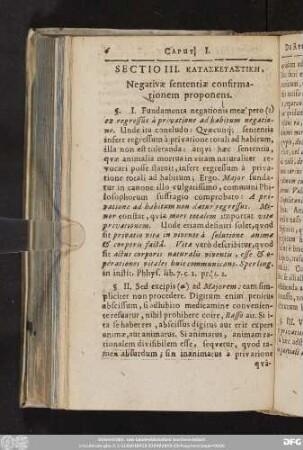 6 CAPUT I.
SECTIO III. ΚΑΤΑΣΚΕΤΑΣΤΙΚΗ,
Negativæ sententiæ confirma-
tionem proponens.
§. I. Fundamenta negationis meæ pero (1)
ex regressus à privatione ad habitum negatio-
ne. Unde ita concludo: Quæcunq; sententia
infert regressum à privatione totali ad habitum,
illa non est toleranda: atqui hæc sententia,
quæ animalia mortua in vitam naturaliter re-
vocari posse statuit, infert regressum à priva-
tione totali ad habitum; Ergo. Major funda-
tur in canone illo vulgatissimo, communi Phi-
losophorum suffragio comprobato: A pri-
vatione ad habitum non datur regressus. Mi-
nor constat, quia mors totalem importat vitæ
privationem. Unde etiam definiri solet, quod
sit privatio vitæ in vivente à solutione animæ
& corporis factâ. Vita verò describitur, quod
sit actus corporis naturalis viventis, esse & o-
perationes vitales huic communicans. Sperling.
in instit. Phys. lib. 7. c. 1.
§. II. Sed excipis (α) ad Majorem: eam sim-
pliciter non procedere. Digitum enim penitus
abscissum, si adhibito medicamine convenien-
te resuatur, nihil prohibere coire, Rasso ait. Si i-
ta se haberet, abscissus digitus aut erit expers
animæ, aut animatus. Si animatus, animam ra-
tionalem divisibilem esse, sequetur, quod ta-
men absurdum; sin inanimatus à privatione